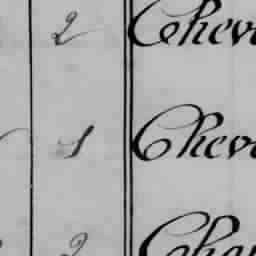 2 Cheva
1 Cheva
2 Che